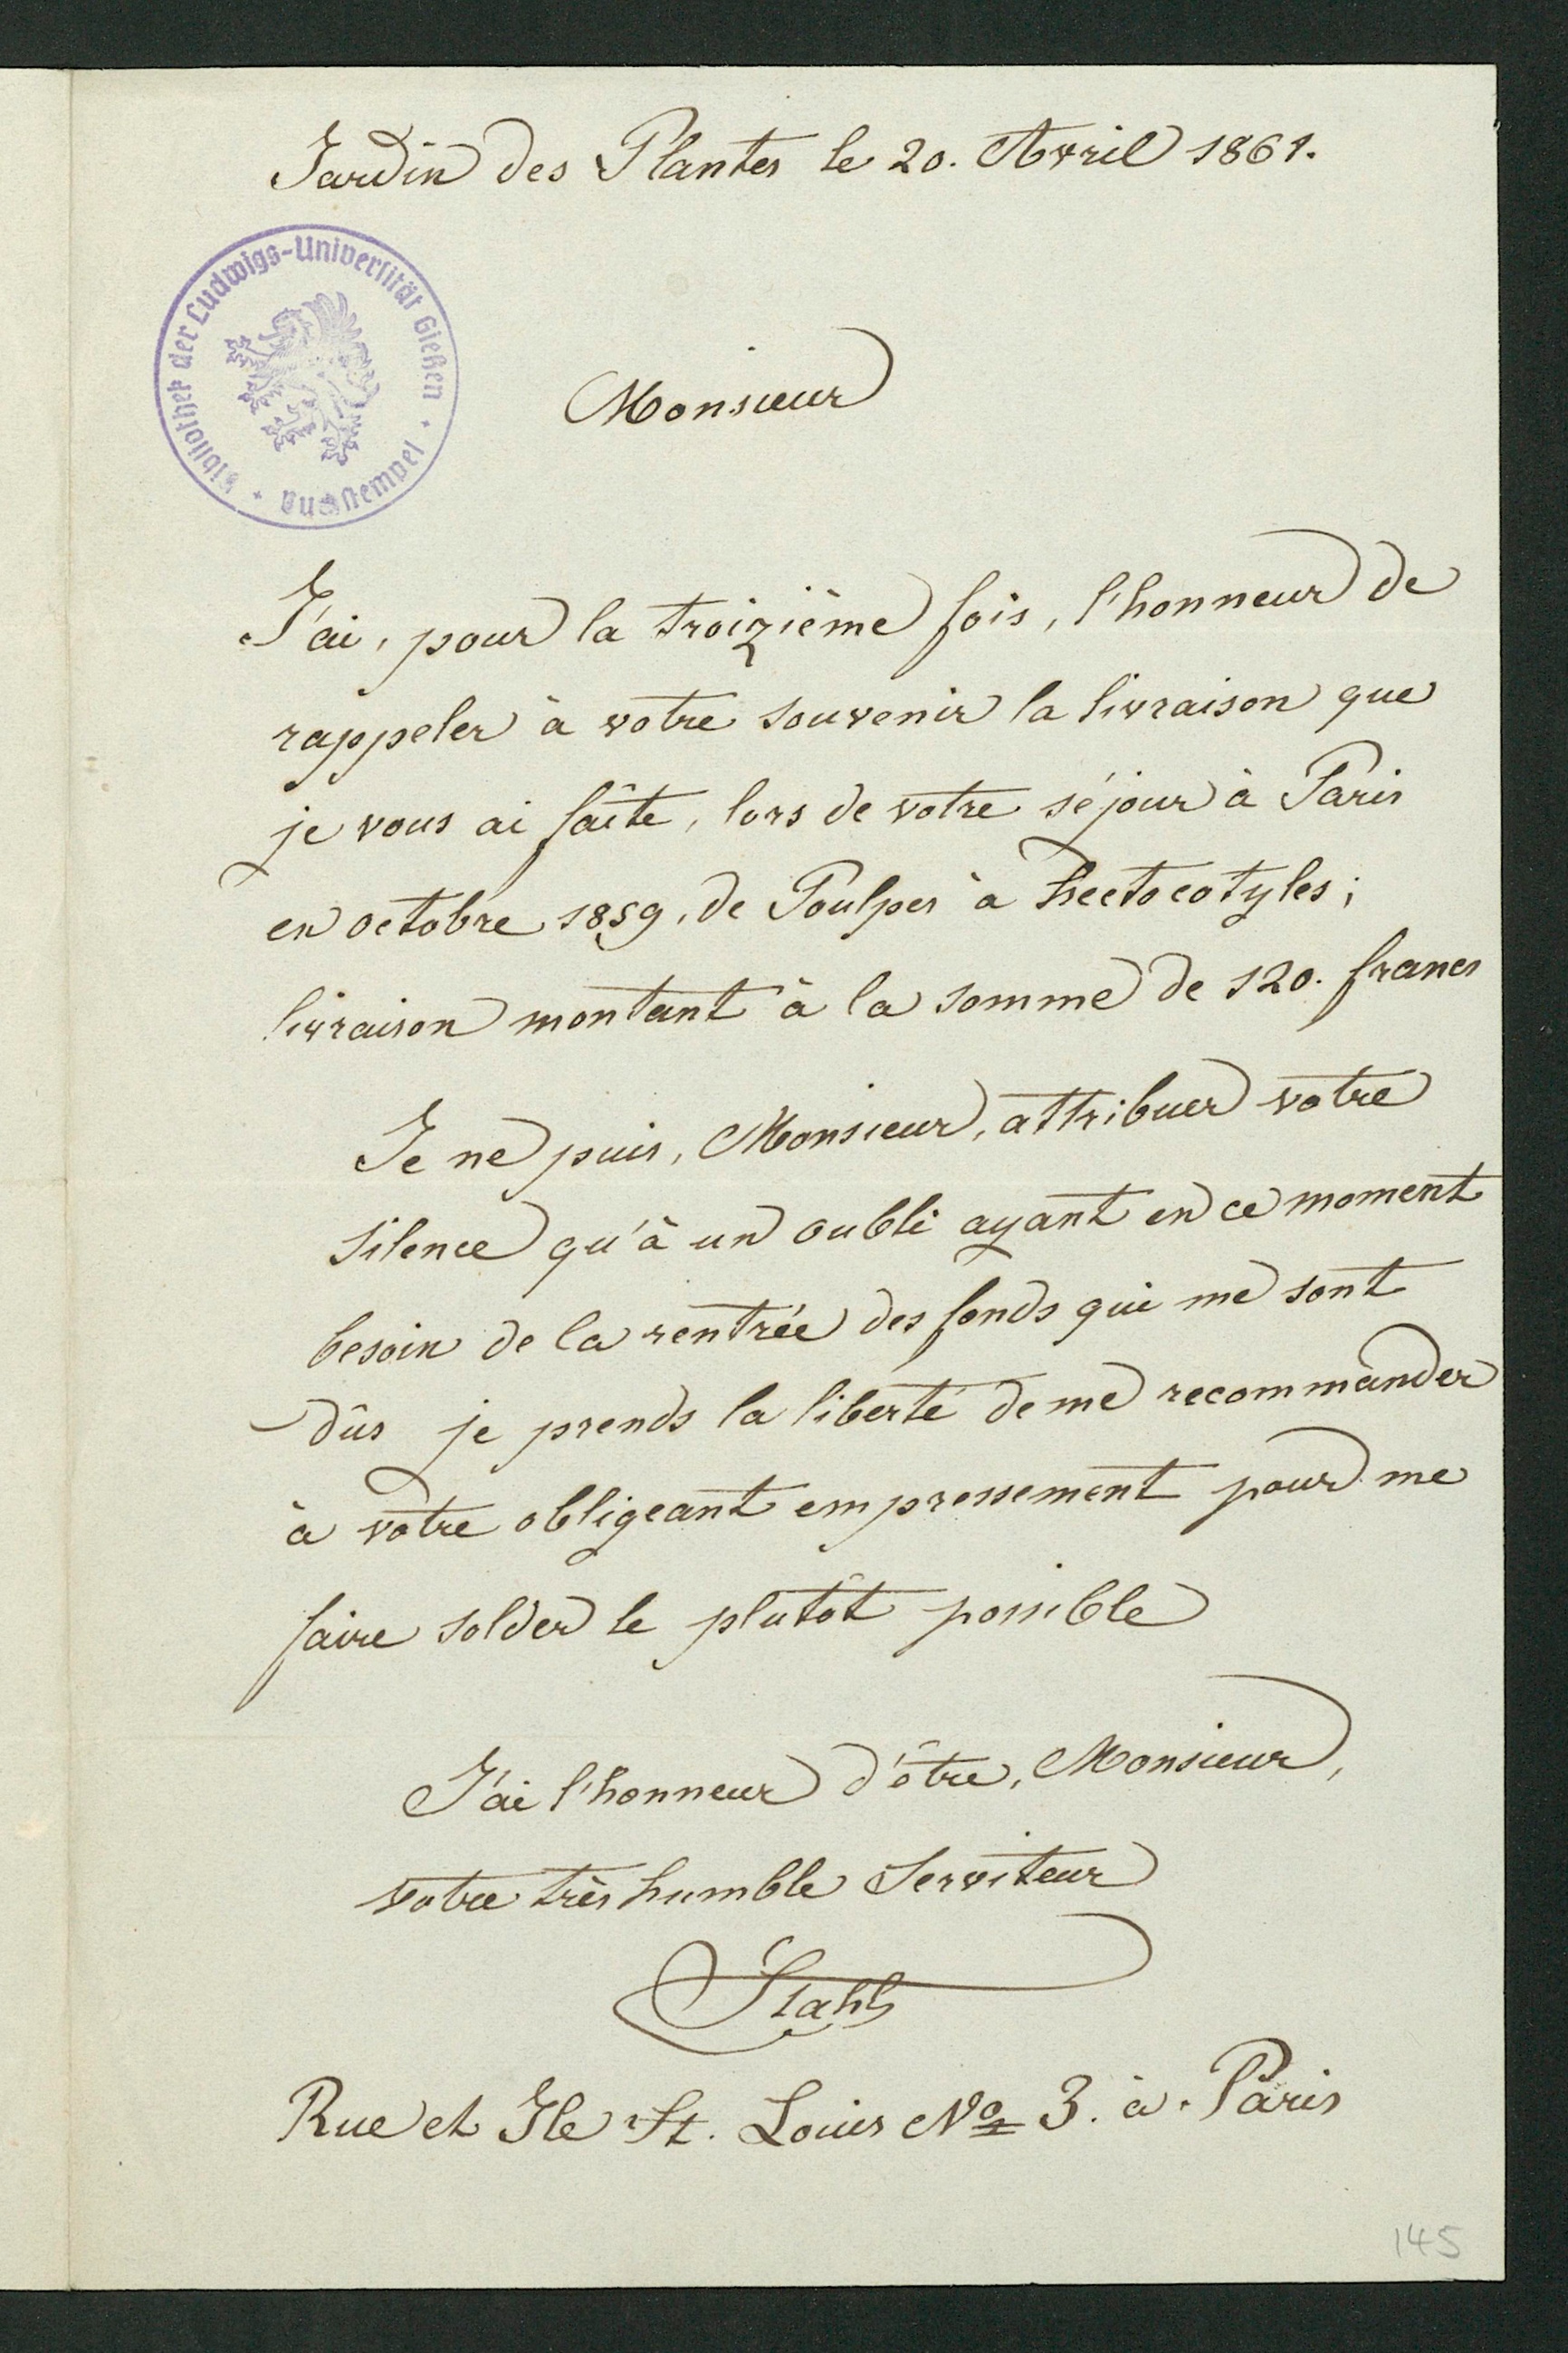 Jardin des Plantes le 20. Avril 1861.
Bibliothek der Ludwigs-Universität Gießen
Monsieur
J'ai, pour la troizième fois, l'honneur de
rappeler à votre souvenir la livraison que
je vous ai faîte, lors de votre séjour à Paris
en octobre 1859, de Poulpes à hectocotyles;
livraison montant à la somme de 120. francs
Je ne puis, Monsieur, attribuer votre
silence qu'à un oubli ayant en ce moment
besoin de la rentrée des fonds qui me sont
dûs je prends la liberté de me recommander
à votre obligeant empressement pour me
faire solder le plutôt possible
J'ai l'honneur d'être, Monsieur,
votre très humble Serviteur
Stahl
Rue et Ile St. Louis No 3. à Paris
145